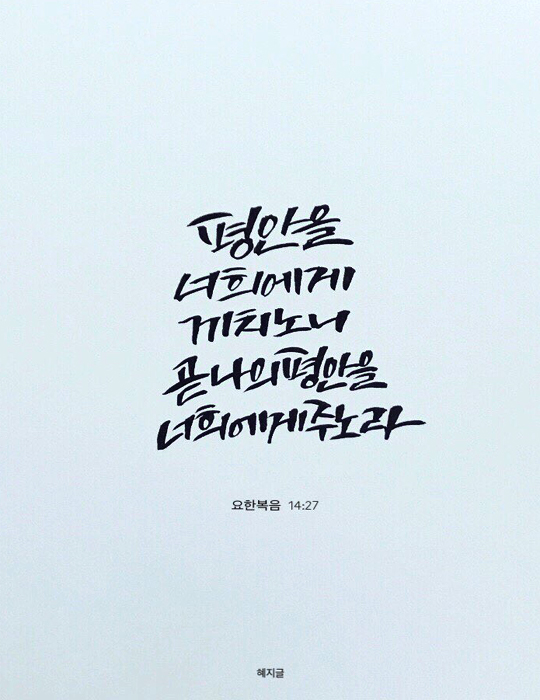 평안을
너희에게
끼치노니
곧 나의 평안을
너희에게 주노라
요한복음 14:27
혜지글